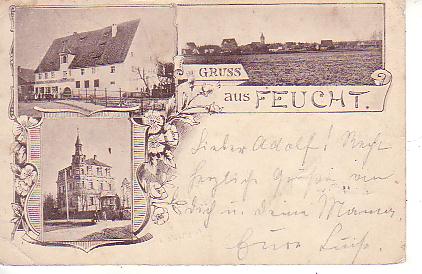 GRUSS
aus FEUCHT.
Lieber Adolf! Recht
herzliche Grüße an
Dich u. deine Mama
Eure Luise.